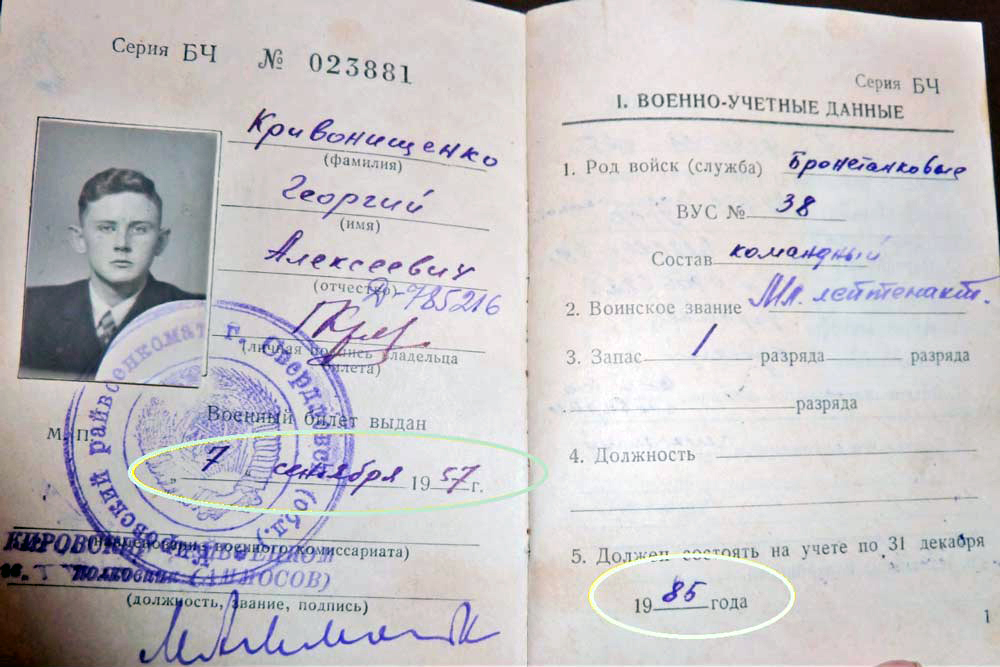 Серия БЧ № 023881
Кривонищенко
(фамилия)
Георгий
(имя)
Алексеевич
(отчество)
Д-785216
(личная подпись владельца
билета)
Военный билет выдан
М. П.
„ 7 “ сентября 1957 г.
(наименование военного комиссариата)
КИРОВСКИЙ РАЙВОЕНКОМ
(должность, звание, подпись)
Серия БЧ
I. ВОЕННО-УЧЕТНЫЕ ДАННЫЕ
1. Род войск (служба) Бронетанковые
ВУС № 38
Состав командный
2. Воинское звание Мл. лейтенант.
3. Запас 1 разряда разряда
разряда
4. Должность
5. Должен состоять на учете по 31 декабря
1985 года
1